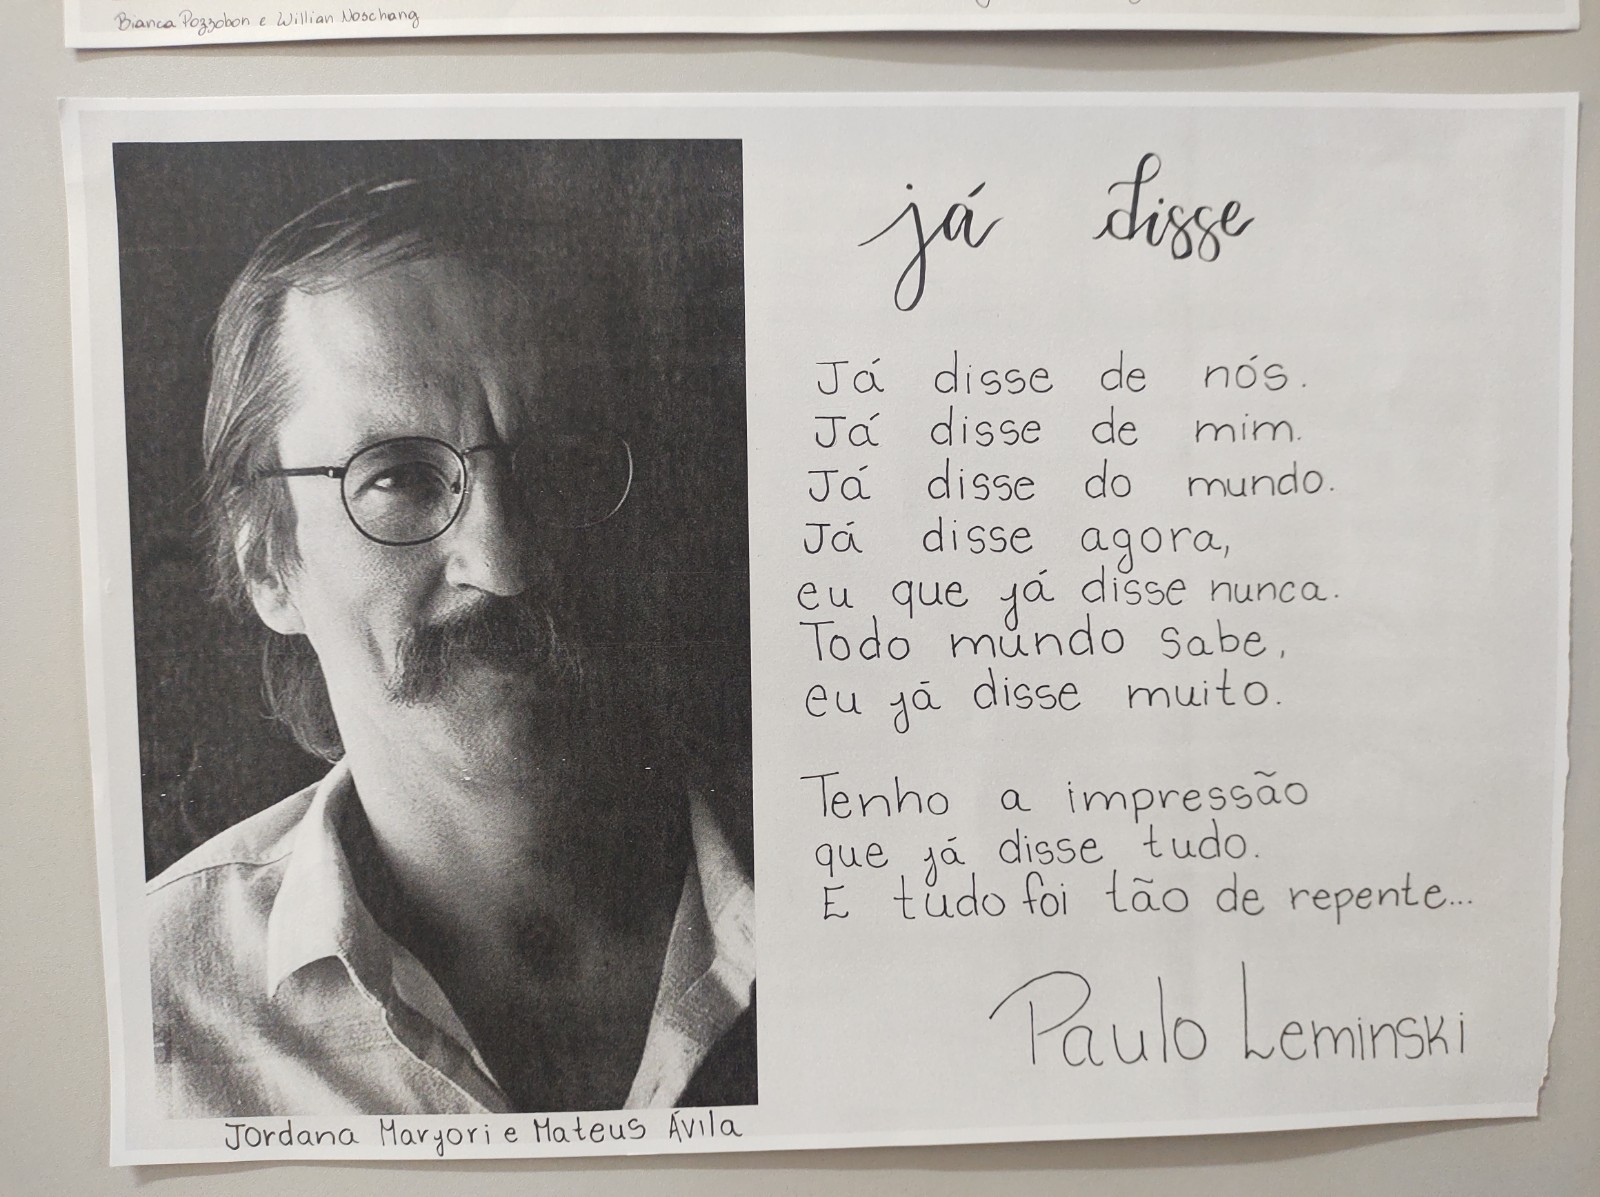 Bianca Pozzobon e Willian Noschang
já disse
Já disse de nós.
Já disse de mim.
Já disse do mundo.
Já disse agora,
eu que já disse nunca.
Todo mundo sabe,
eu já disse muito.
Tenho a impressão
que já disse tudo.
E tudo foi tão de repente...
Paulo Leminski
Jordana Maryori e Mateus Ávila